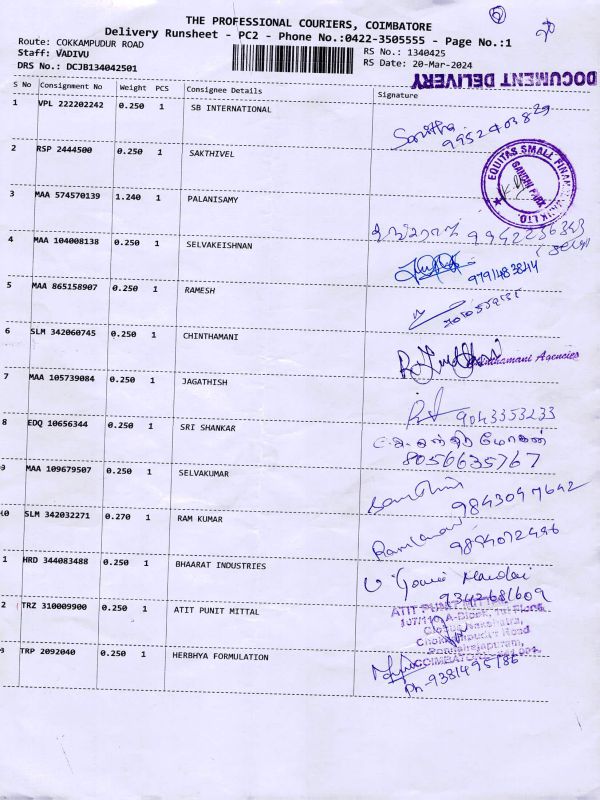 THE PROFESSIONAL COURIERS, COIMBATORE
Delivery Runsheet - PC2 - Phone No.:0422-3505555 - Page No.:1
Route: COKKAMPUDUR ROAD
Staff: VADIVU
DRS No.: DCJB134042501
RS No.: 1340425
RS Date: 20-Mar-2024
DOCUMENT DELIVERY
S No Consignment No Weight PCS Consignee Details Signature
1 VPL 222202242 0.250 1 SB INTERNATIONAL
9952403829
2 RSP 2444500 0.250 1 SAKTHIVEL
EQUITAS SMALL FINANCE BANK LTD
GANDHI PARK
3 MAA 574570139 1.240 1 PALANISAMY
4 MAA 104008138 0.250 1 SELVAKEISHNAN
9791483844
5 MAA 865158907 0.250 1 RAMESH
6 SLM 342060745 0.250 1 CHINTHAMANI
Chinthamani Agencies
7 MAA 105739084 0.250 1 JAGATHISH
9043353233
8 EDQ 10656344 0.250 1 SRI SHANKAR
8056635767
9 MAA 109679507 0.250 1 SELVAKUMAR
9843047642
10 SLM 342032271 0.270 1 RAM KUMAR
1 HRD 344083488 0.250 1 BHAARAT INDUSTRIES
9342681609
2 TRZ 310009900 0.250 1 ATIT PUNIT MITTAL
ATIT PUNIT MITTAL
3 TRP 2092040 0.250 1 HERBHYA FORMULATION
Ph-9381495186